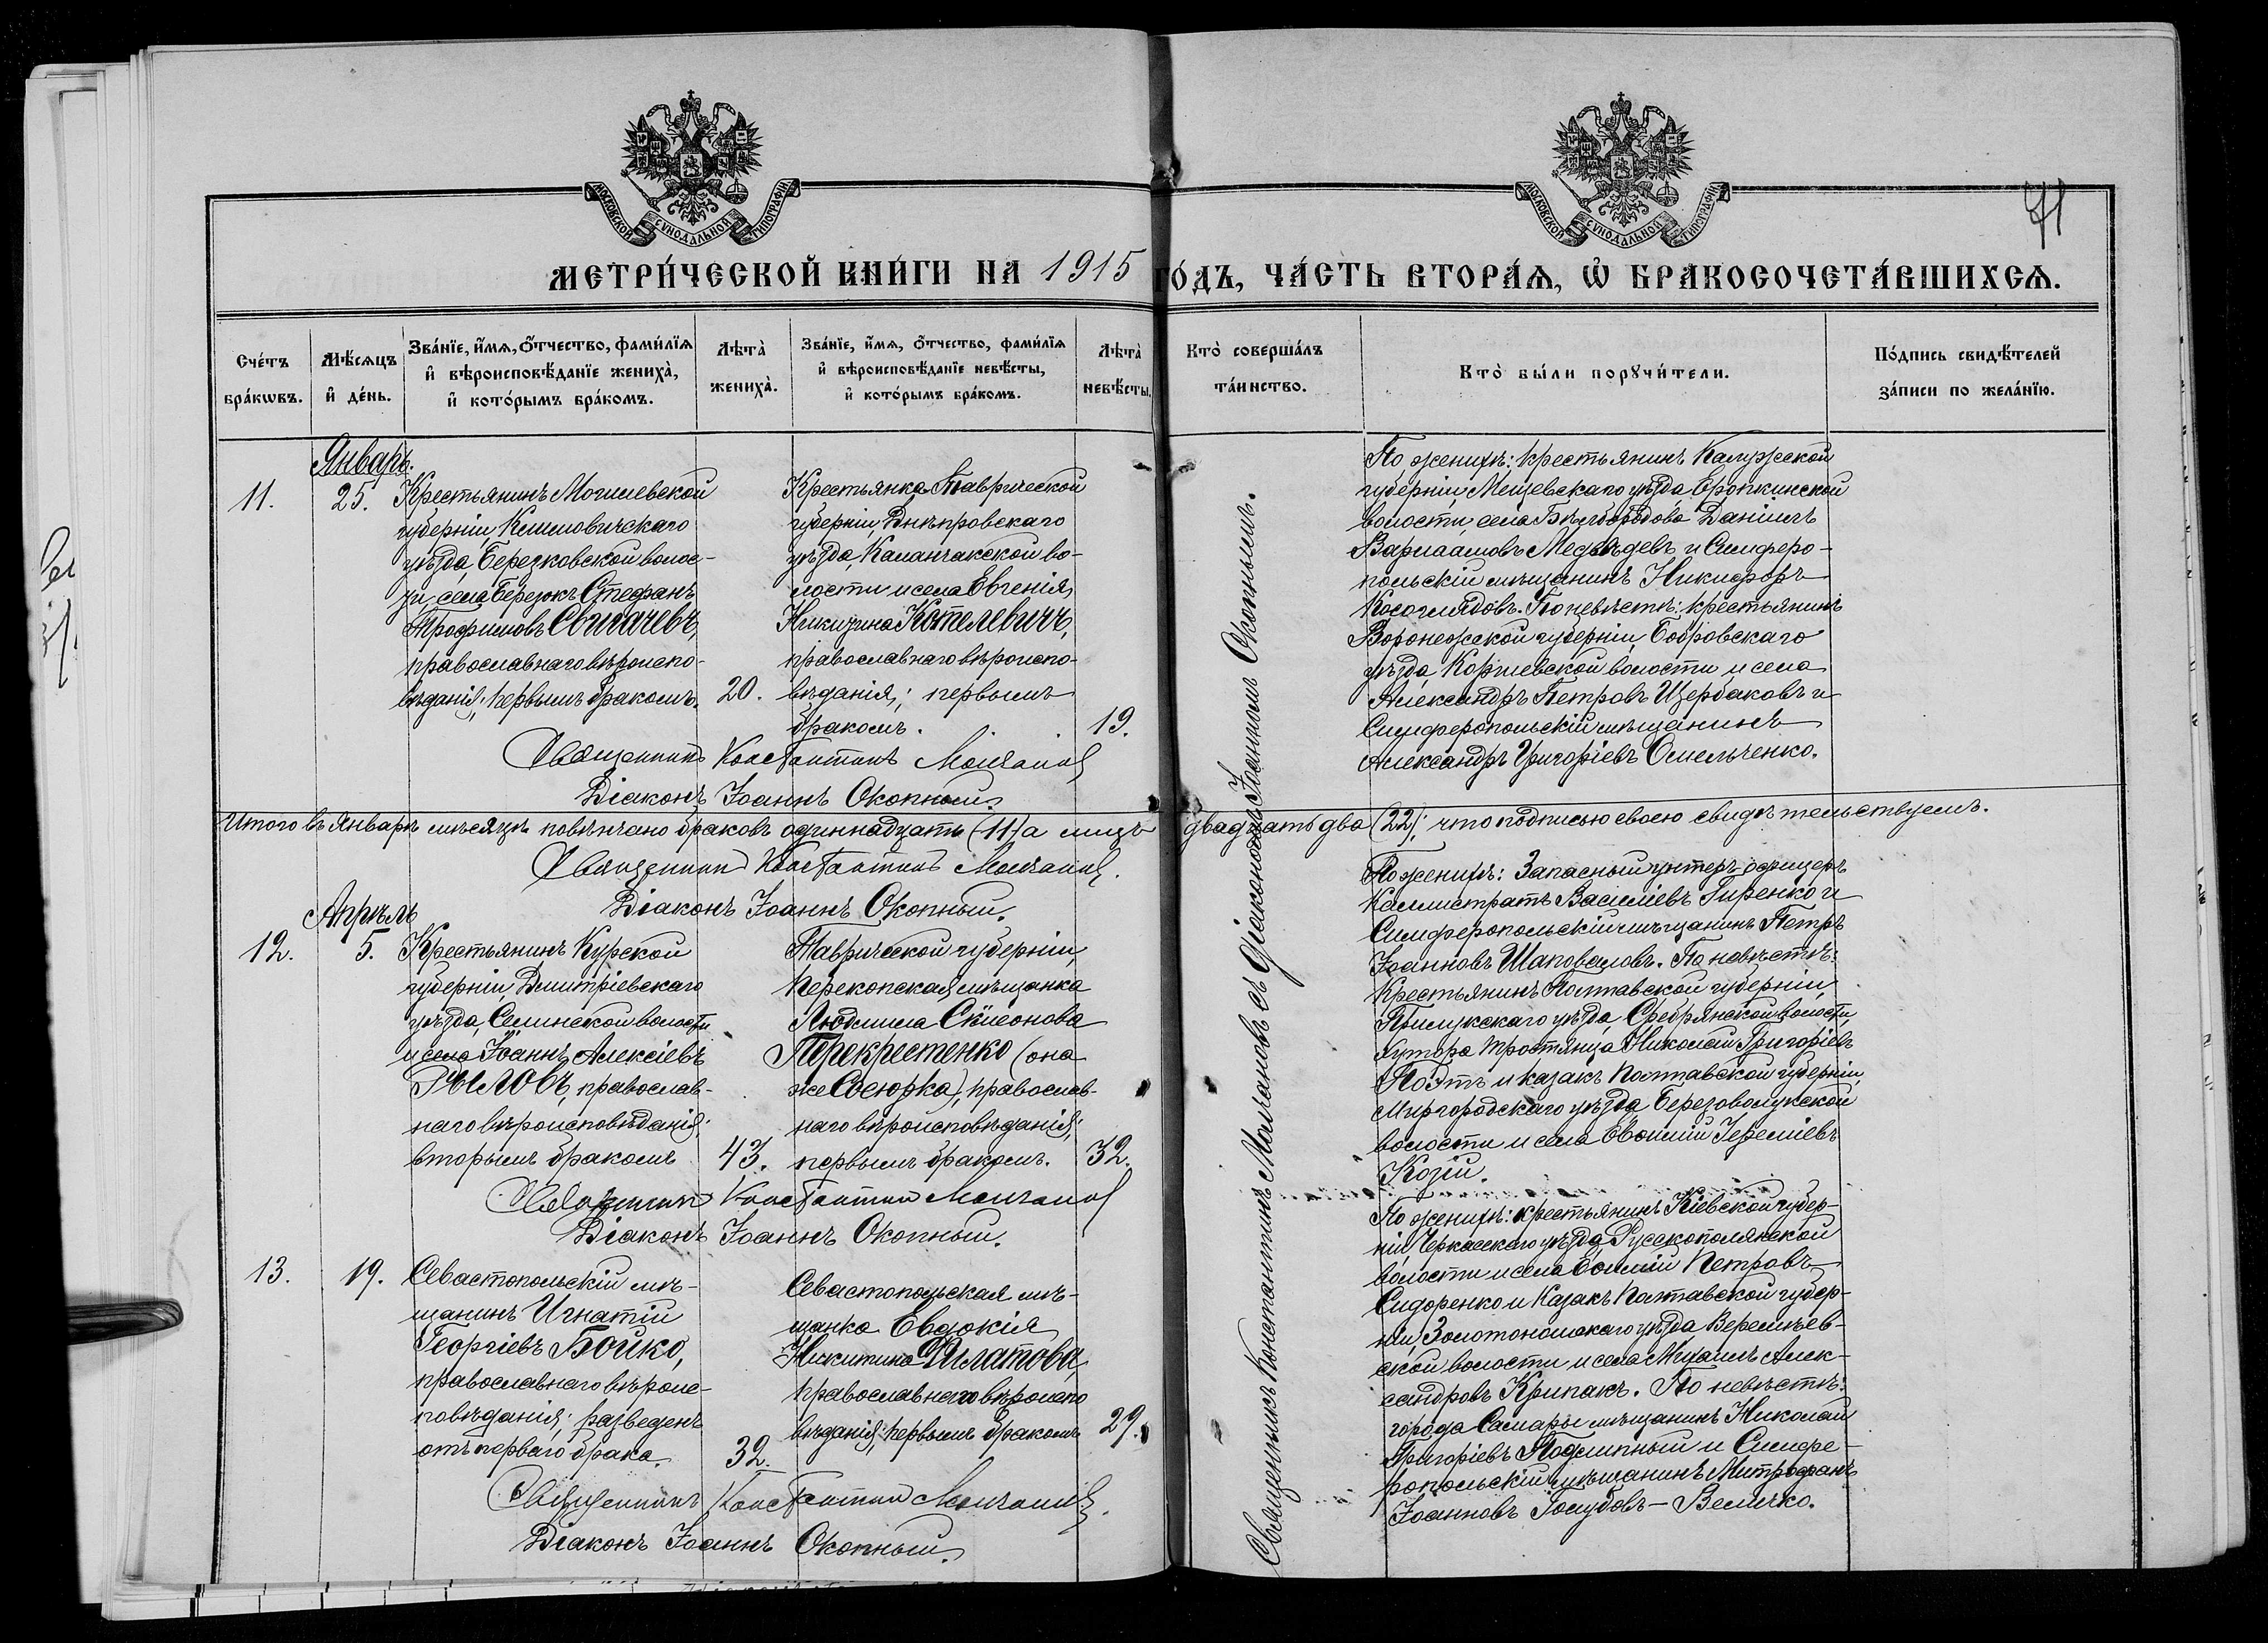 МОСКОВСКОЙ СѴНОДАЛЬНОЙ ТИПОГРАФІИ
МОСКОВСКОЙ СѴНОДАЛЬНОЙ ТИПОГРАФІИ
71
МЕТРИ́ЧЕСКОЙ КНИ́ГИ НА 1915 ГО́ДЪ, ЧА́СТЬ ВТОРА́Я, Ѡ БРАКОСОЧЕТА́ВШИХСЯ.
Сче́тъ
бра́кѡвъ.
Мѣ́сяцъ
и҆ де́нь.
Зва́нїе, и҆́мя, ѻ҆́тчество, фами́лїя
и҆ вѣроисповѣ́данїе жениха̀,
и҆ кото́рымъ бра́комъ.
Лѣта̀
жениха̀.
Зва́нїе, и҆́мя, ѻ҆́тчество, фами́лїя
и҆ вѣроисповѣ́данїе невѣ́сты,
и҆ кото́рымъ бра́комъ.
Лѣта̀
невѣ́сты.
Кто̀ соверша́лъ
та́инство.
Кто̀ бы́ли порꙋчи́тели.
По́дпись свидѣ́телей
за́писи по жела́нїю.
Январь.
11.
25.
Крестьянинъ Могилевской
губерніи, Климовичскаго
уѣзда, Березковской волос-
ти, села Березокъ Стефанъ
Трофимовъ Свигачевъ,
православнаго вѣроиспо-
вѣданія; первымъ бракомъ.
20.
Крестьянка Таврической
губерніи, Днѣпровскаго
уѣзда, Каланчакской во-
лости и села Евгенія
Никитина Котелевичъ,
православнаго вѣроиспо-
вѣданія; первымъ
бракомъ.
19.
По женихѣ: крестьянинъ Калужской
губерніи, Мещевскаго уѣзда, Еропкинской
волости, села Бѣлбородова Даніилъ
Варлаамовъ Медвѣдевъ и Симферо-
польскій мѣщанинъ Никифоръ
Косоглядовъ. По невѣстѣ: крестьянинъ
Воронежской губерніи, Бобровскаго
уѣзда, Коршевской волости и села
Александръ Петровъ Щербаковъ и
Симферопольскій мѣщанинъ
Александръ Григоріевъ Омельченко.
Священникъ Константинъ Молчановъ
Діаконъ Іоаннъ Окопный.
Итого въ Январѣ мѣсяцѣ повѣнчано браковъ одиннадцать (11) а лицъ двадцать два (22); что подписью своею свидѣтельствуемъ.
Священникъ Константинъ Молчановъ.
Діаконъ Іоаннъ Окопный.
Священникъ Константинъ Молчановъ съ діакономъ Іоанномъ Окопнымъ.
Апрѣль
12.
5.
Крестьянинъ Курской
губерніи, Дмитріевскаго
уѣзда, Селинской волости
и села Іоаннъ Алексіевъ
Рыловъ, православ-
наго вѣроисповѣданія;
вторымъ бракомъ
43.
Таврической губерніи,
Перекопская мѣщанка
Людмила Симеонова
Перекрестенко (она
же Сосюрка), православ-
наго вѣроисповѣданія;
первымъ бракомъ.
32.
По женихѣ: Запасный унтеръ-офицеръ
Каллистратъ Василіевъ Гиренко и
Симферопольскій мѣщанинъ Петръ
Іоанновъ Шаповаловъ. По невѣстѣ:
Крестьянинъ Полтавской губерніи,
Прилукскаго уѣзда, Сребрянской волости,
хутора Тростянца Николай Григоріевъ
Поэтъ и казакъ Полтавской губерніи,
Миргородскаго уѣзда, Березоволукской
волости и села Іеремiевъ
Козій.
Священникъ Константинъ Молчановъ
Діаконъ Іоаннъ Окопный.
13.
19.
Севастопольскій мѣ-
щанинъ Игнатій
Георгіевъ Бойко,
православнаго вѣроис-
повѣданія; разведенъ
отъ перваго брака.
32.
Севастопольская мѣ-
щанка Евдокія
Никитина Филатова,
православнаго вѣроиспо
вѣданія; первымъ бракомъ
29.
По женихѣ: крестьянинъ Кіевской губер-
ніи, Черкасскаго уѣзда, Русскополянской
волости и села Петровъ
Сидоренко и Казакъ Полтавской губер-
ніи, Золотоношскаго уѣзда Веремѣев-
ской волости и села Михаилъ Алек-
сандровъ Крипакъ. По невѣстѣ:
города Самары мѣщанинъ Николай
Григоріевъ Подлипный и Симфе-
ропольскій мѣщанинъ Митрофанъ
Іоанновъ Голубовъ-Величко.
Священникъ Константинъ Молчановъ.
Діаконъ Іоаннъ Окопный.